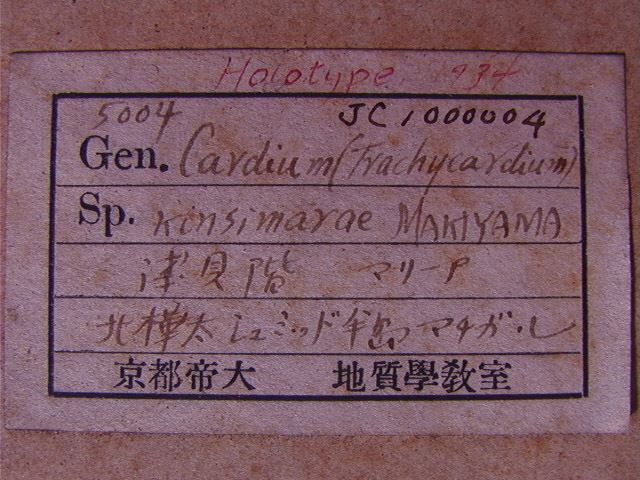 Holotype 1934
5004 JC1000004
Gen. Cardium (Trachycardium)
Sp. kinsimarae MAKIYAMA
貝階 マリーP
北樺太シュミッド半島マチガール
京都帝大 地質學教室